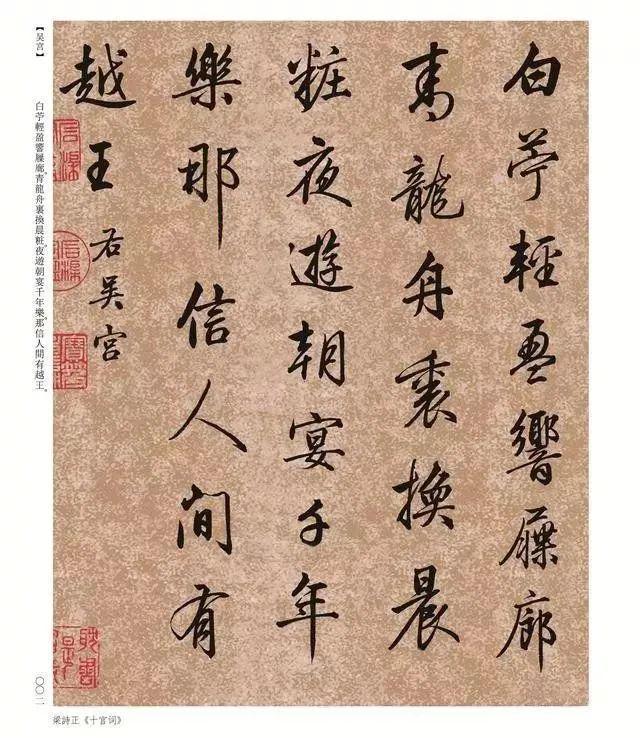 白苧輕盈響屧廊
青龍舟裏換晨
粧夜遊朝宴千年
樂那信人間有
越王
右吳宮
【吴宫】
白苧輕盈響屧廊。青龍舟裏換晨粧。夜遊朝宴千年樂。那信人間有越王。
〇〇二
梁詩正《十宫词》